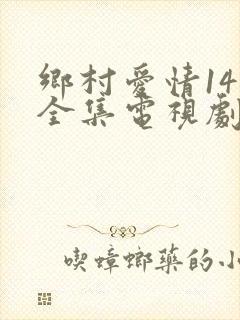 鄉村愛情14
全集電視劇
喫蟑螂藥的小